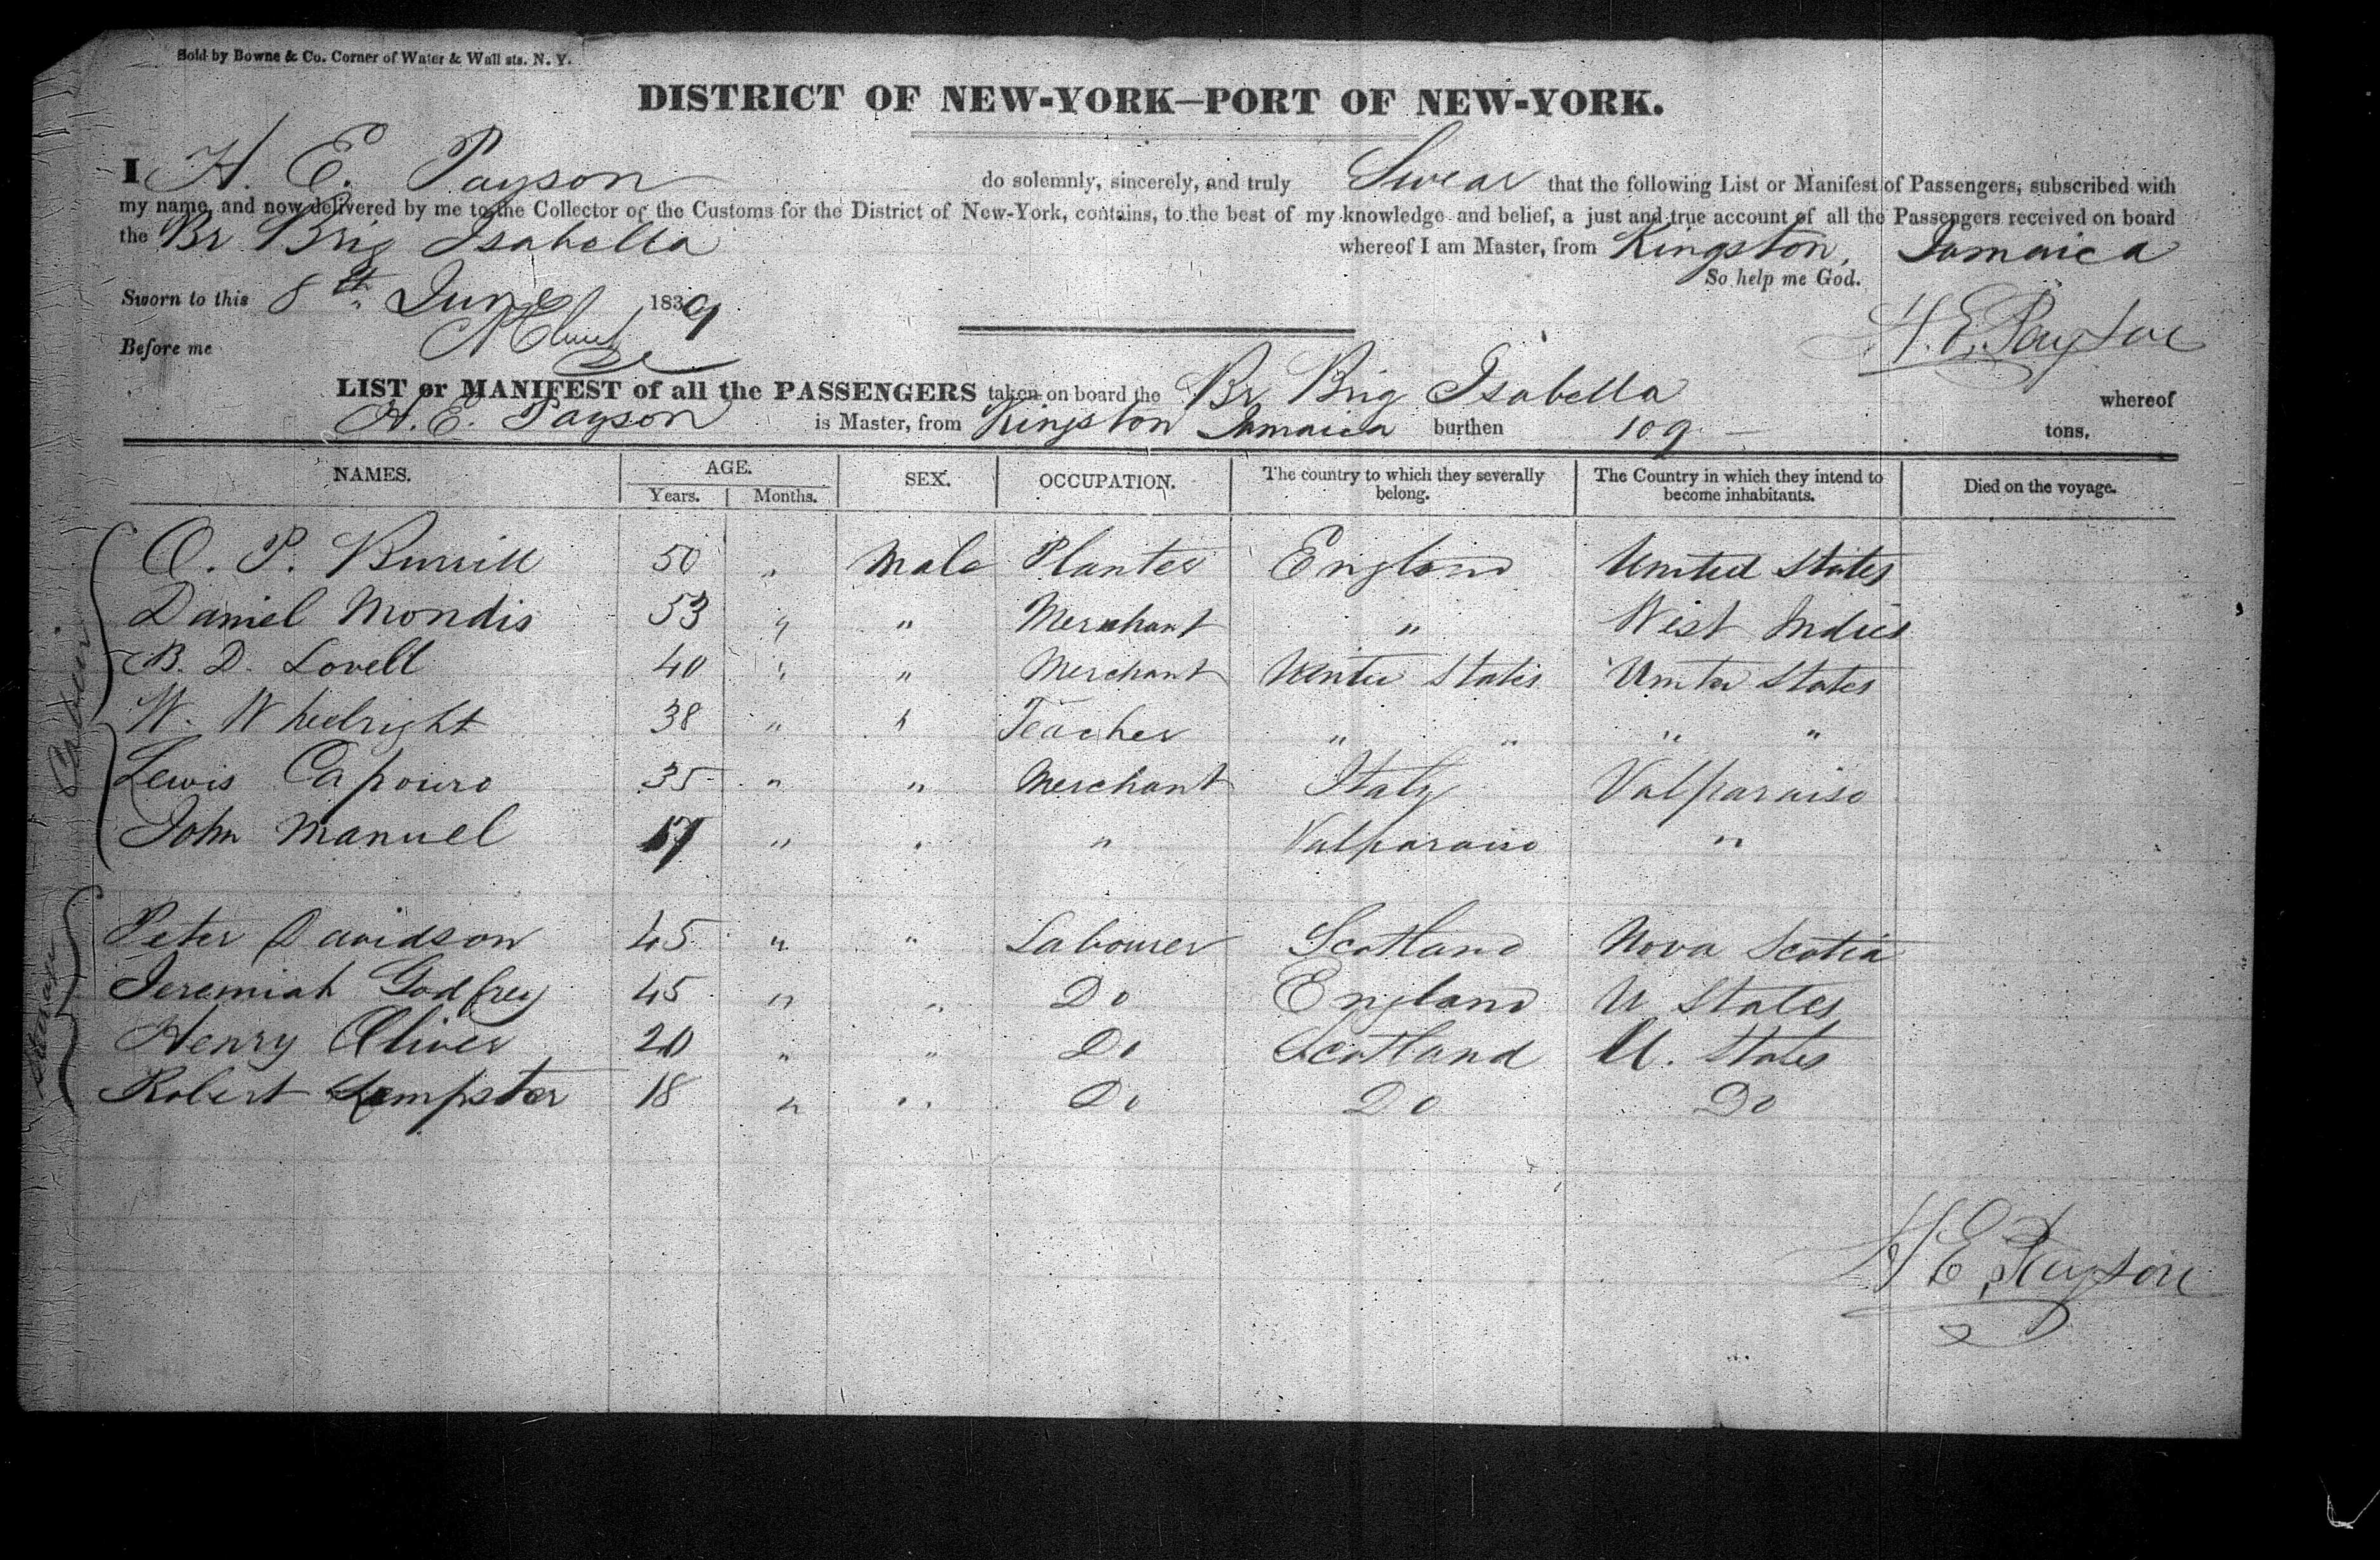 Sold by Bowne & Co. Corner of Water & Wall sts. N. Y.
DISTRICT OF NEW-YORK—PORT OF NEW-YORK.
I H. E. Payson do solemnly, sincerely, and truly Swear that the following List or Manifest of Passengers, subscribed with
my name, and now delivered by me to the Collector of the Customs for the District of New-York, contains, to the best of my knowledge and belief, a just and true account of all the Passengers received on board
the Br Brig Isabella whereof I am Master, from Kingston, Jamaica
So help me God.
Sworn to this 8th June 1839
H. E. Payson
Before me
LIST or MANIFEST of all the PASSENGERS taken on board the Br Brig Isabella whereof
H. E. Payson is Master, from Kingston Jamaica burthen 109 tons.
NAMES. AGE. Years. Months. SEX. OCCUPATION. The country to which they severally belong. The Country in which they intend to become inhabitants. Died on the voyage.
O. P. Burrill 50 " Male Planter England United States
Daniel Mondis 53 " " Merchant " West Indies
B. D. Lovell 40 " " Merchant United States United States
W. Wheelright 38 " " Teacher " " " "
Lewis Capouro 35 " " Merchant Italy Valparaiso
John Manuel 17 " " " Valparaiso "
Peter Davidson 45 " " Labourer Scotland Nova Scotia
Jeremiah Godfrey 45 " " Do England U States
Henry Oliver 20 " " Do Scotland U. States
Robert Dempster 18 " " Do Do Do
H E Payson